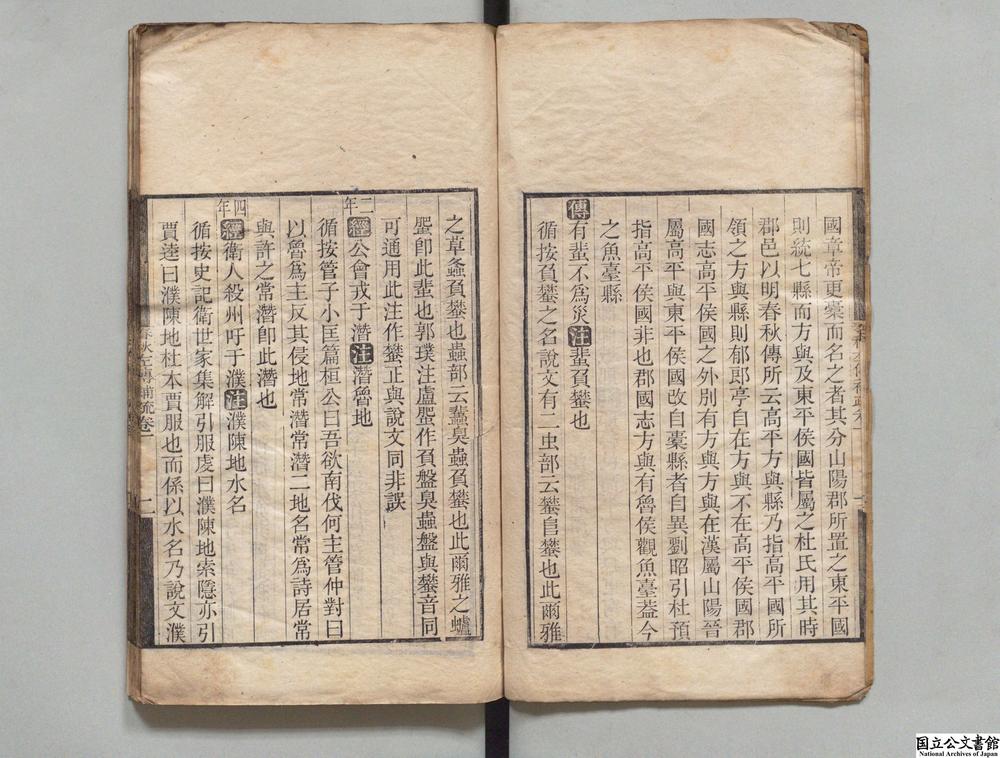 國章帝更橐而名之者其分山陽郡所置之東平國
則統七縣而方與及東平侯國皆屬之杜氏用其時
郡邑以明春秋傳所云高平方與縣乃指高平國所
領之方與縣則郁郎亭自在方與不在高平侯國郡
國志高平侯國之外別有方與方與在漢屬山陽晉
屬高平與東平侯國改自橐縣者自異劉昭引杜預
指高平侯國非也郡國志方與有魯侯觀魚臺葢今
之魚臺縣
傳有蜚不爲災注蜚負蠜也
循按負蠜之名說文有二虫部云蠜𨸏蠜也此爾雅
之草螽負蠜也蟲部云蠹臭蟲負蠜也此爾雅之蠦
蜰卽此蜚也郭璞注盧蜰作負盤臭蟲盤與蠜音同
可通用此注作蠜正與說文同非誤
二年
經公會戎于潛注潛魯地
循按管子小匡篇桓公曰吾欲南伐何主管仲對曰
以魯爲主反其侵地常潛常潛二地名常爲詩居常
與許之常潛卽此潛也
四年
經衛人殺州吁于濮注濮陳地水名
循按史記衛世家集解引服虔曰濮陳地索隱亦引
賈逵曰濮陳地杜本賈服也而係以水名乃說文濮
春秋左傳補疏卷一
二
国立公文書館
National Archives of Japan